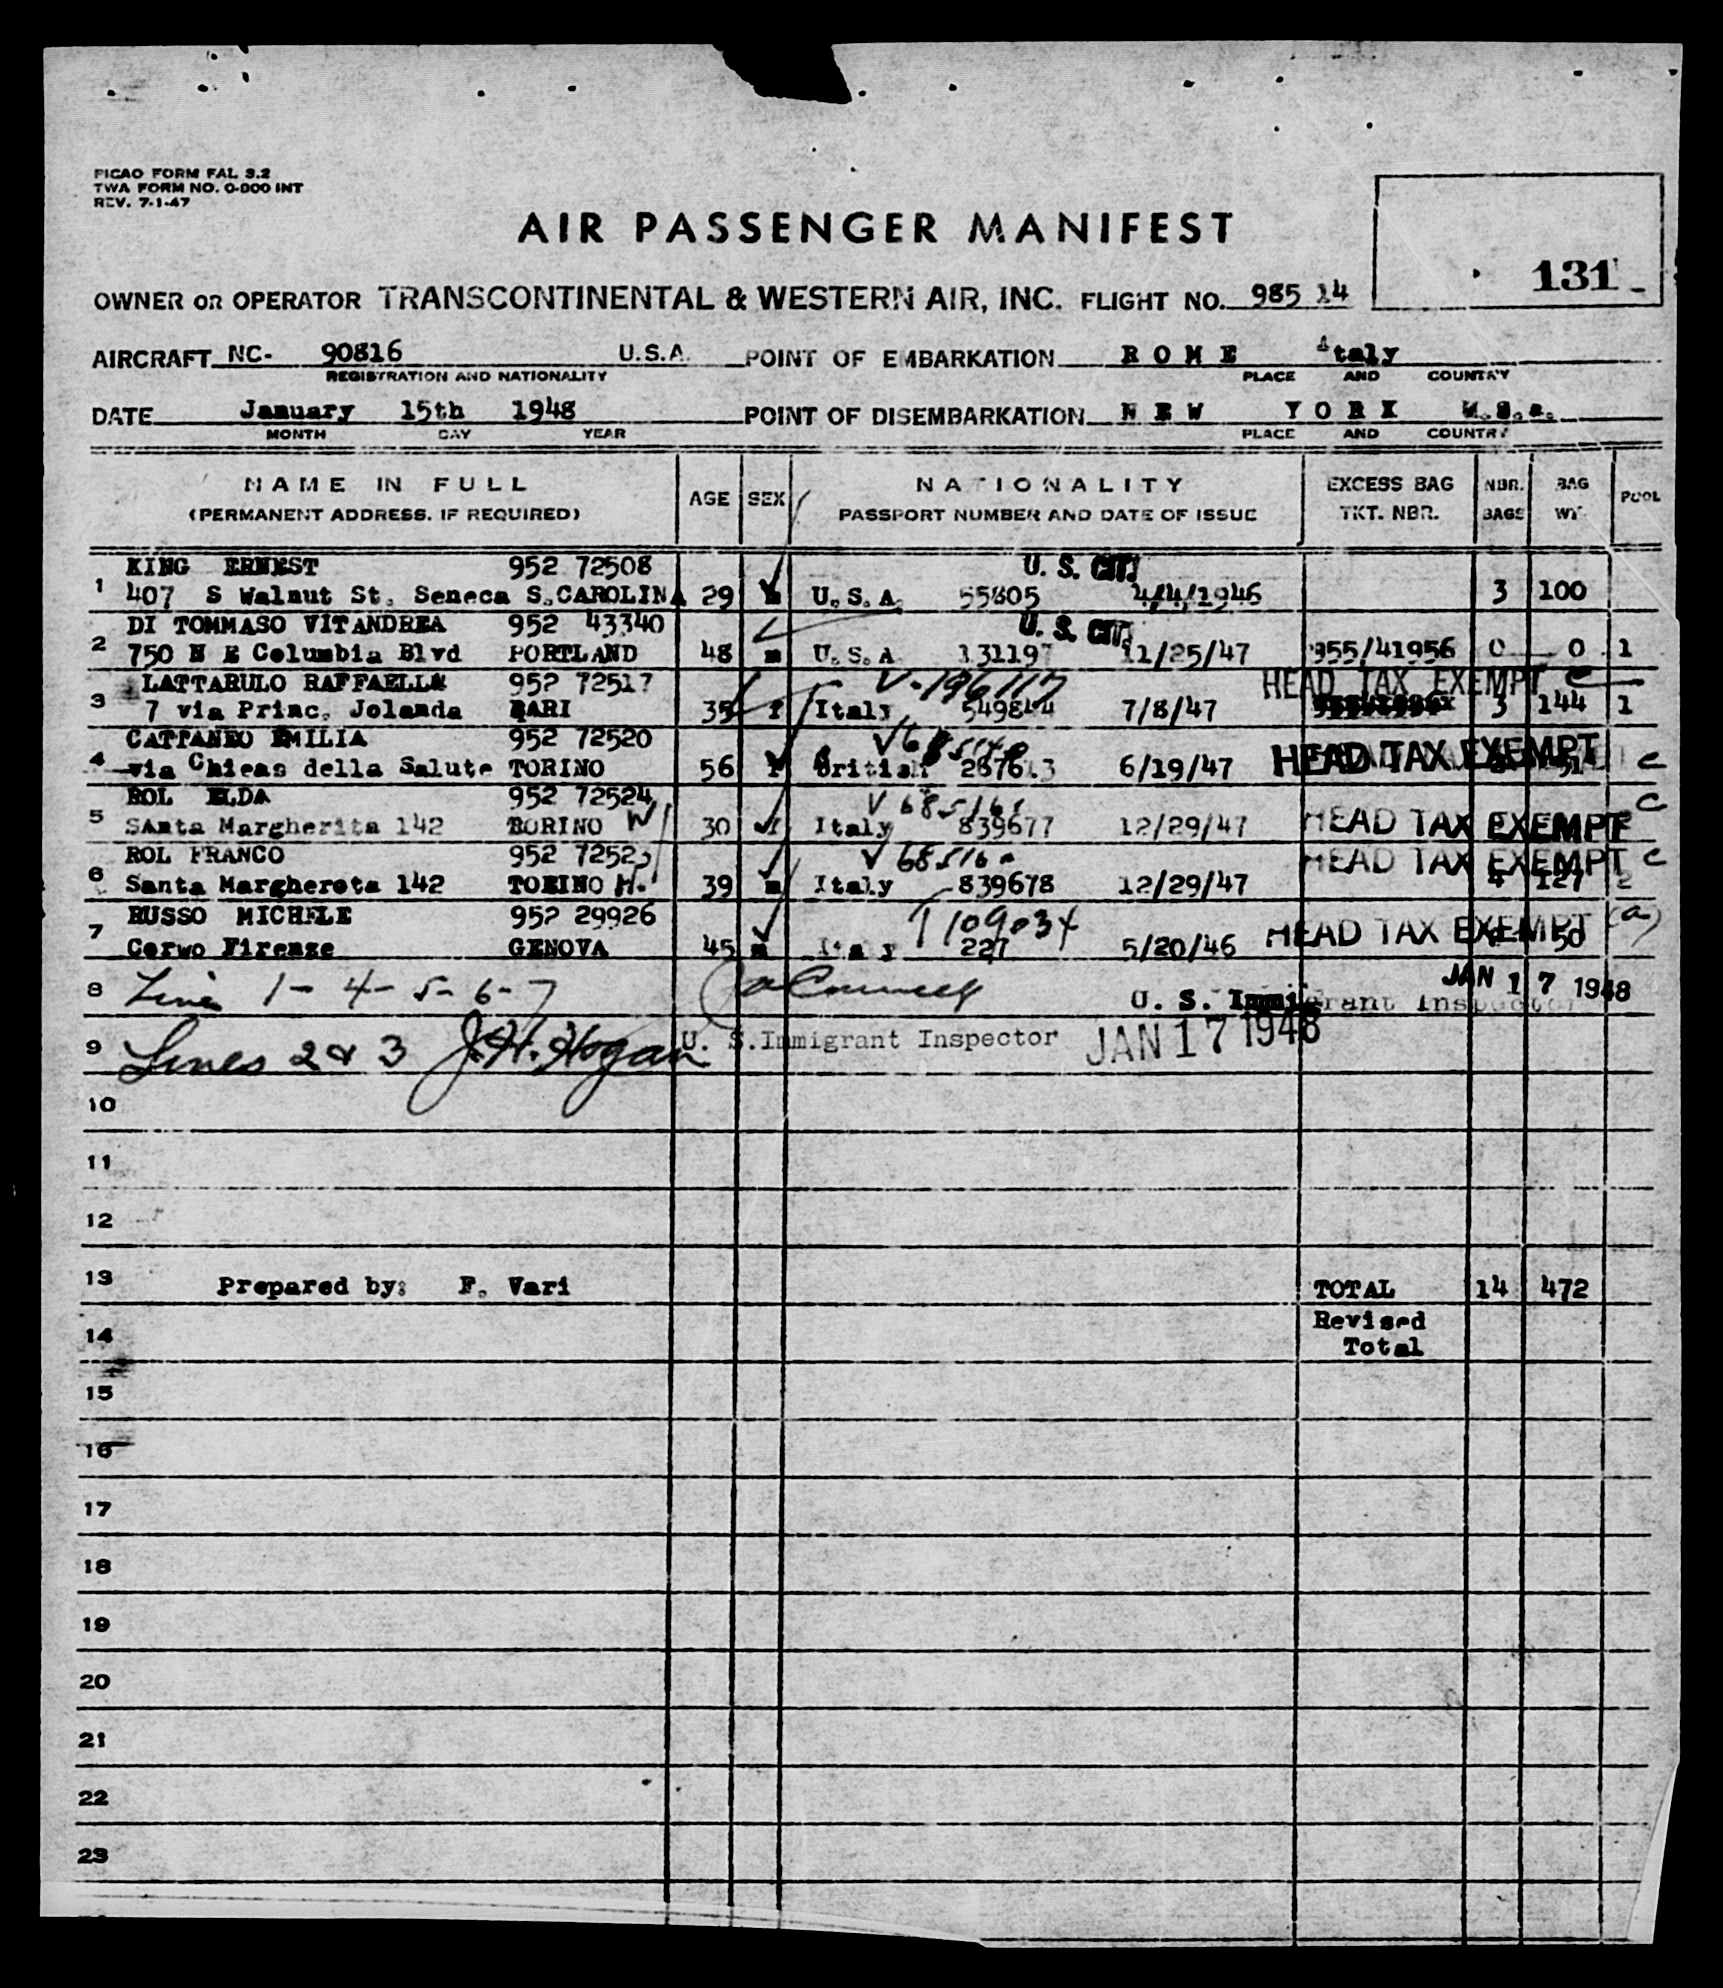 PICAO FORM FAL 3.2
TWA FORM NO. O-000 INT
REV. 7-1-47
AIR PASSENGER MANIFEST
131
OWNER OR OPERATOR TRANSCONTINENTAL & WESTERN AIR, INC. FLIGHT NO. 985 14
AIRCRAFT NC- 90816 U.S.A. POINT OF EMBARKATION R O M E Italy
REGISTRATION AND NATIONALITY PLACE AND COUNTRY
DATE January 15th 1948 POINT OF DISEMBARKATION N E W Y O R K U.S.a.
MONTH DAY YEAR PLACE AND COUNTRY
NAME IN FULL AGE SEX NATIONALITY EXCESS BAG NBR. BAG POOL
(PERMANENT ADDRESS. IF REQUIRED) PASSPORT NUMBER AND DATE OF ISSUE TKT. NBR. BAGS WT.
KING ERNEST 952 72508 U. S. CIT.
1 407 S Walnut St. Seneca S.CAROLINA 29 m U.S.A. 55805 4/4/1946 3 100
DI TOMMASO VITANDREA 952 43340 U. S. CIT.
2 750 N E Columbia Blvd PORTLAND 48 m U.S.A 131197 11/25/47 955/41956 0 0 1
LATTARULO RAFFAELLA 952 72517 V-196117 HEAD TAX EXEMPT C
3 7 via Princ. Jolanda BARI 35 f Italy 549844 7/8/47 3 144 1
CATTANEO EMILIA 952 72520 HEAD TAX EXEMPT
4 via Chieas della Salute TORINO 56 f British 6/19/47 C
ROL ELDA 952 72524 V 685161 C
5 SAnta Margherita 142 TORINO W 30 f Italy 839677 12/29/47 HEAD TAX EXEMPT
ROL FRANCO 952 72523 V 685160 HEAD TAX EXEMPT C
6 Santa Margherota 142 TORINO H. 39 m Italy 839678 12/29/47 4 127 2
RUSSO MICHELE 952 29926 T 109034 HEAD TAX EXEMPT (a)
7 Corwo Firenze GENOVA 45 m Italy 227 5/20/46 50
8 Line 1- 4- 5- 6- 7 U. S. Immigrant Inspector JAN 17 1948
9 Lines 2 & 3 J.H. Hogan U. S.Immigrant Inspector JAN 17 1948
10
11
12
13 Prepared by: F. Vari TOTAL 14 472
14 Revised
Total
15
16
17
18
19
20
21
22
23